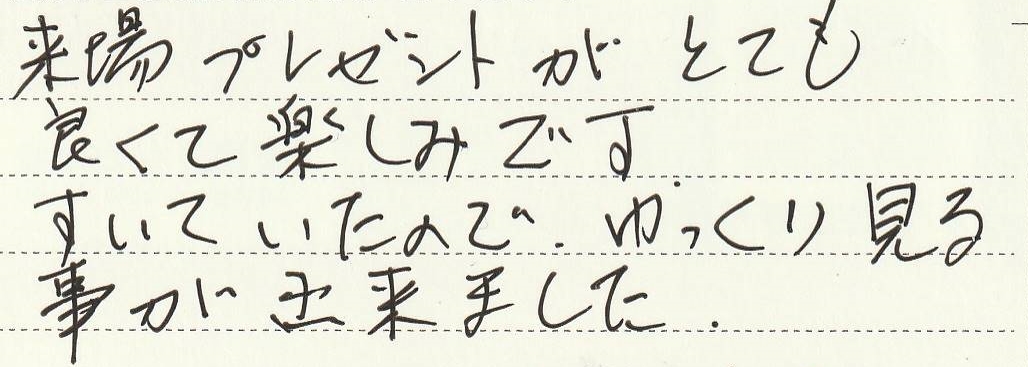 来場プレゼントがとても
良くて楽しみです
すいていたので.ゆっくり見る
事が出来ました.